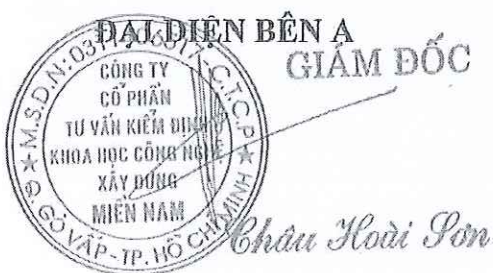 ĐẠI DIỆN BÊN A
GIÁM ĐỐC
CÔNG TY
CỔ PHẦN
TƯ VẤN KIỂM ĐỊNH
KHOA HỌC CÔNG NGHỆ
XÂY DỰNG
MIỀN NAM
M.S.D.N:
C.T.C.P
Q. GÒ VẤP - TP. HỒ CHÍ MINH
Châu Hoài Sơn